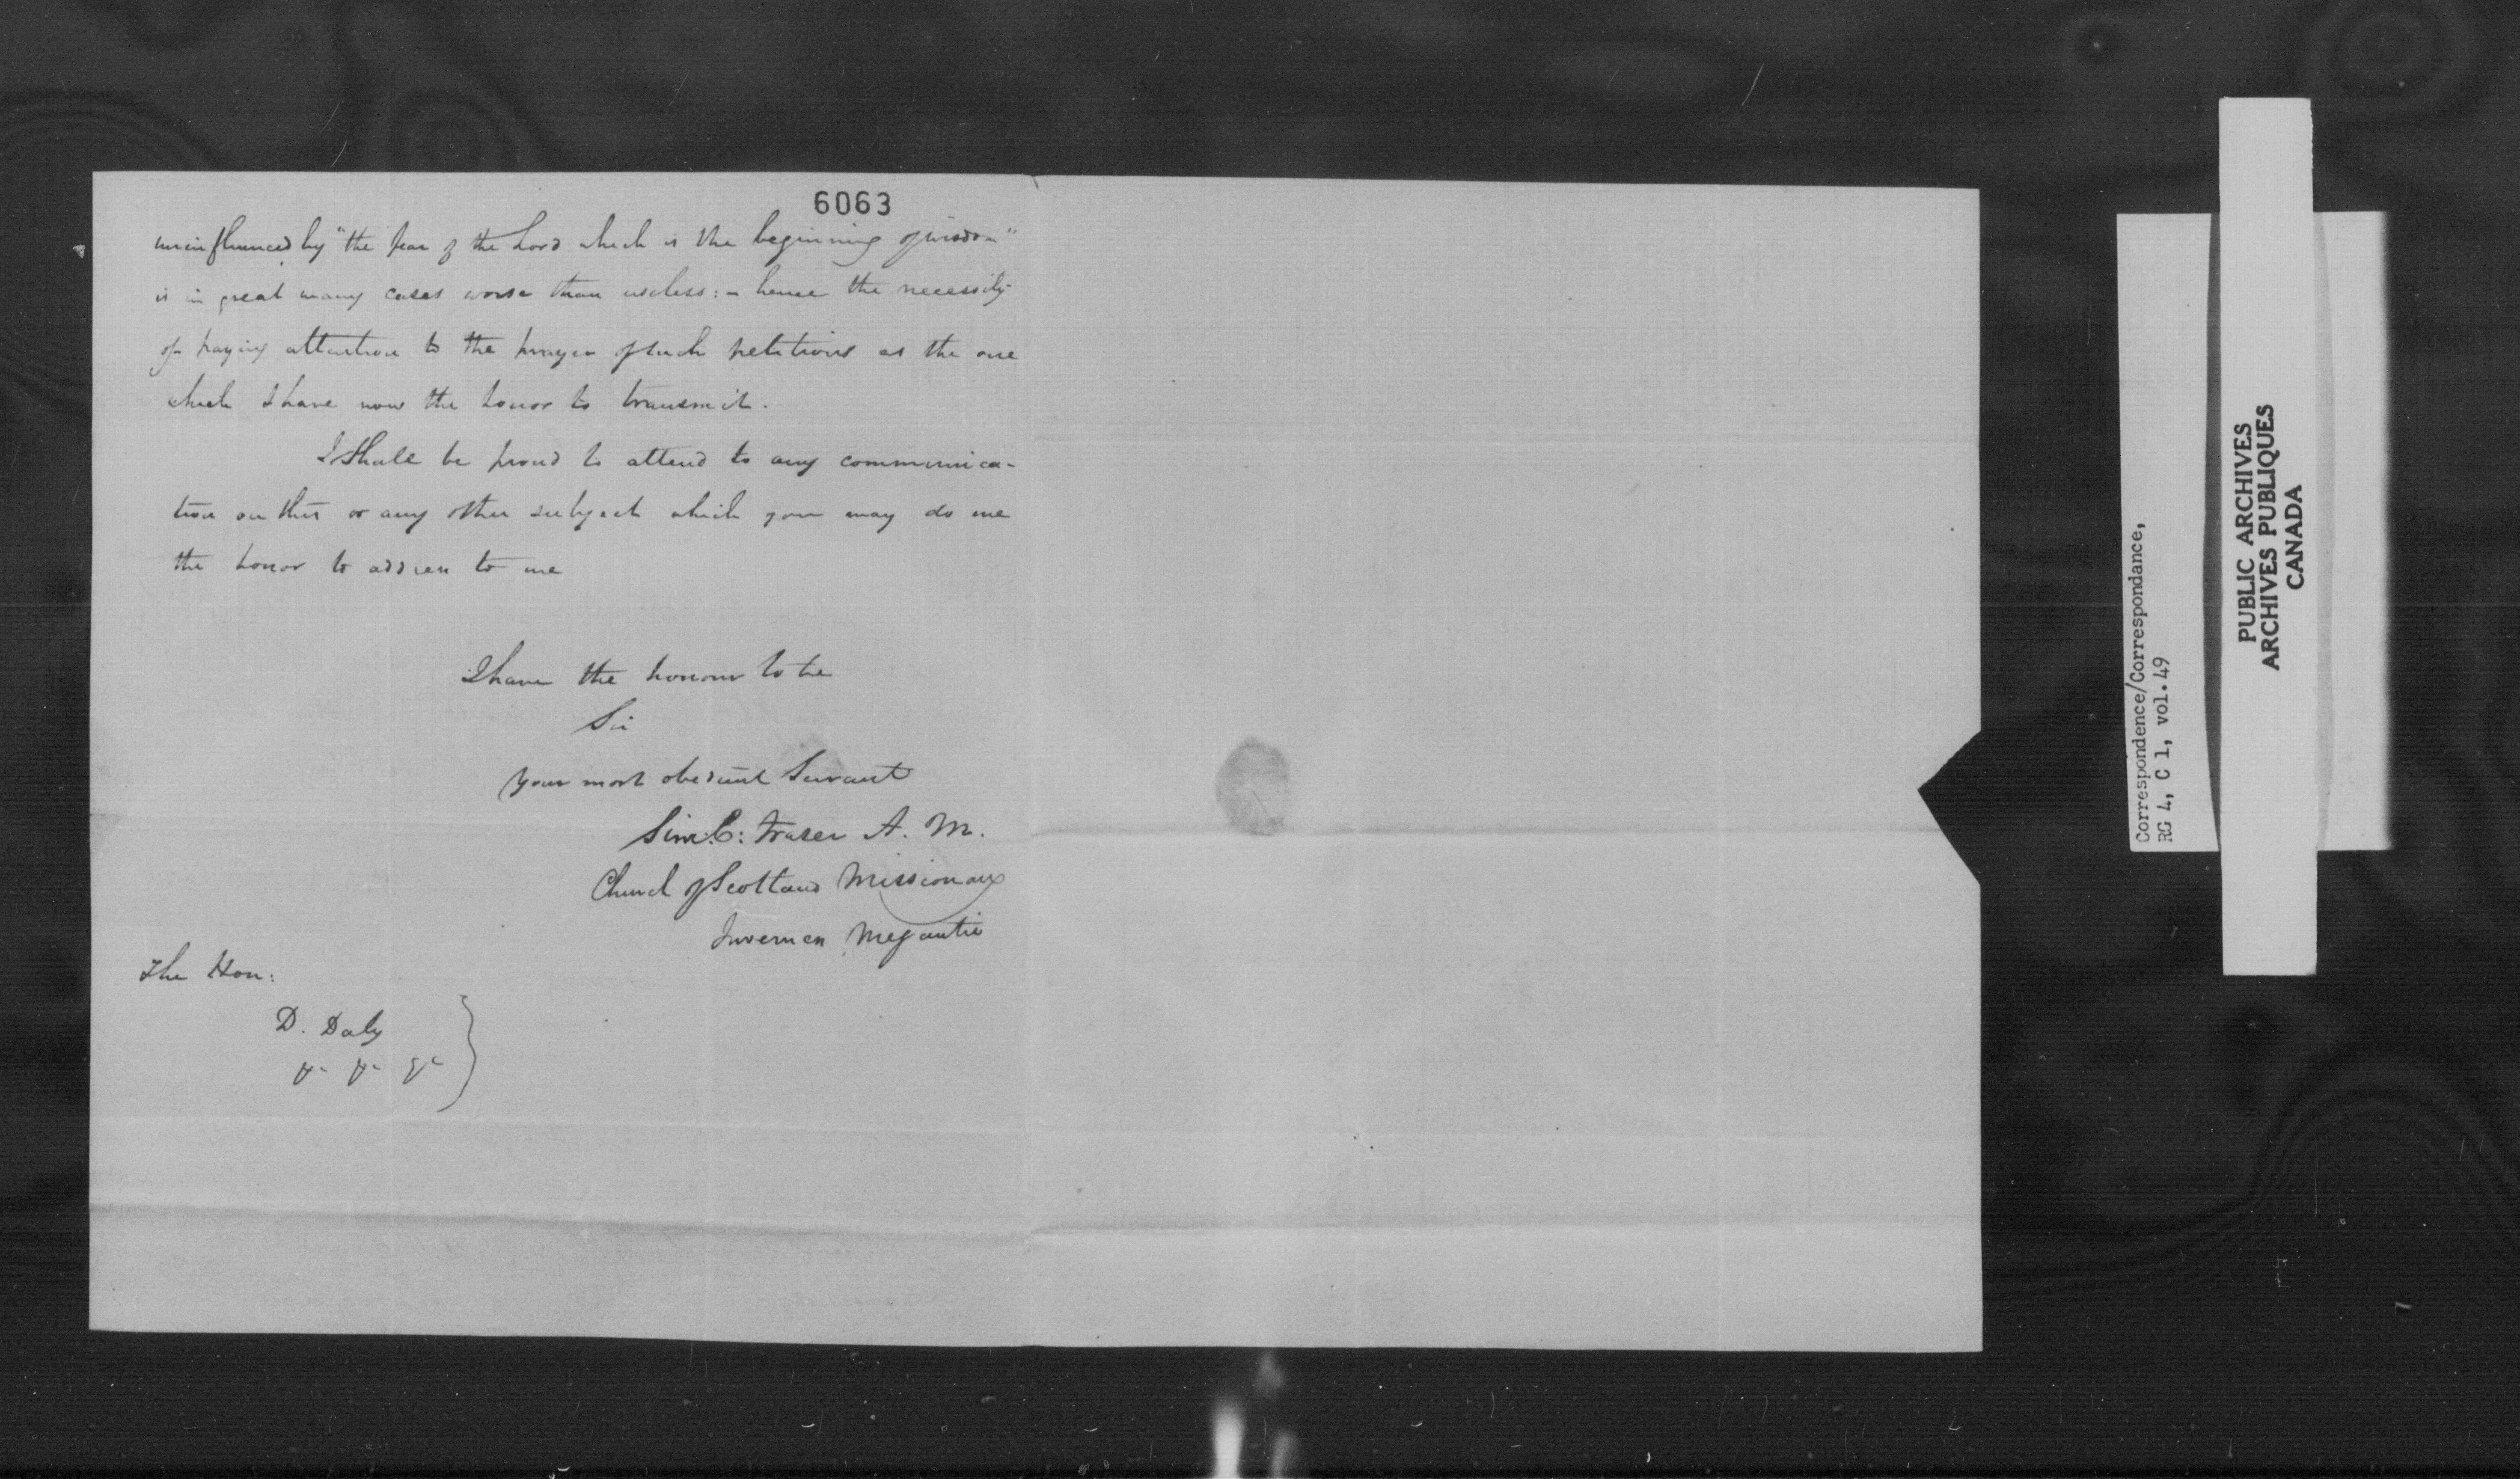 6063
uninfluenced by "the fear of the Lord which is the beginning of wisdom"
is in great many cases worse than useless: - hence the necessity
of paying attention to the prayer of such petitions as the one
which I have now the honor to transmit.
I shall be proud to attend to any communica-
tion on this or any other subject which you may do me
the honor to address to me
I have the honour to be
Sir
your most obedient Servant
Sim. C: Fraser A. M.
Church of Scotland Missionary
Inverness Megantic
The Hon:
D. Daly
&c &c &c
Correspondence/Correspondance,
RG 4, C 1, vol.49
PUBLIC ARCHIVES
ARCHIVES PUBLIQUES
CANADA